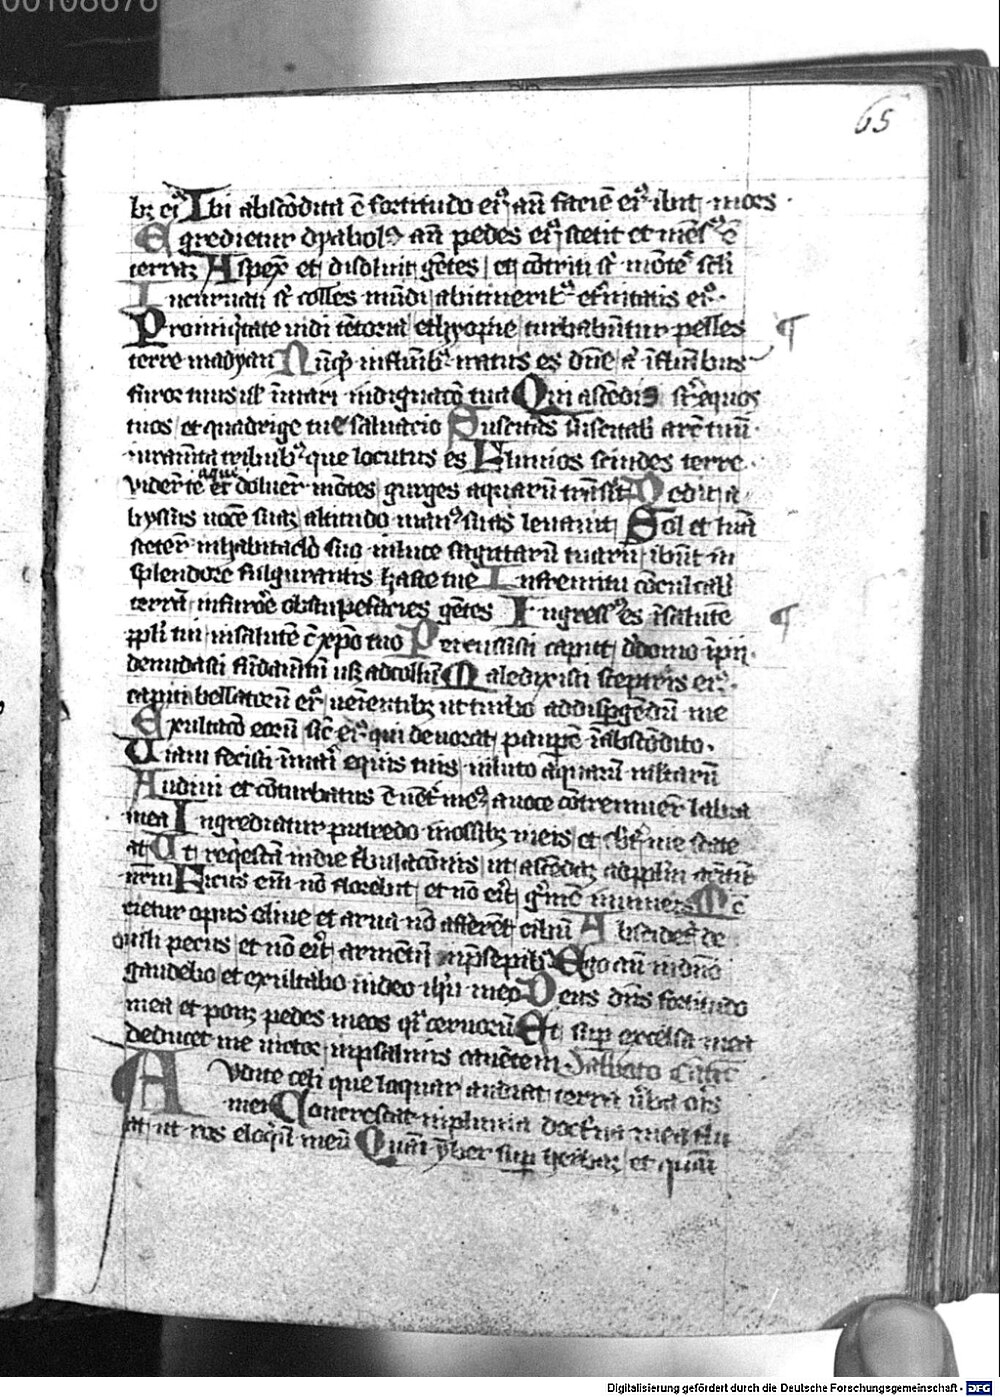 00108676
65
bꝫ eiꝰ Ibi abscōdita ē fortitudo eiꝰ an̄ faciē eiꝰ ibit mors
Egredietur dyabolꝰ an̄ pedes eiꝰ stetit et mēsꝰ ē
terraꝫ Aspex̄ et disoluit gētes et cōtriti st̄ mōtes sc̄li
Incuruati st̄ colles mūdi abitineribꝰ et̄nitatis eiꝰ
Pro iniq̇tate uidi tētoria ethyopie turbabūtur pelles
terre madyan Nūq̇d influmībꝰ iratus es dn̄e ł ī flumībus
furor tuus uł in mari indignacō tua Qui ascēdis sr̄ equos
tuos et quadrige tue saluacio Suscitās suscitabis arcū tuū
iuramēta tribubꝰ que locutus es Fluuios scindes terre
aque
viderūt te et doluer̄t mōtes gurges aquarū trāsijt Dedit a
byssus uocē suā altitudo manꝰ suas leuauit Sol et luna
steter̄t in habitaclo suo in luce sagittarū tuarū ibūt in
splendore fulgurantis haste tue In fremitu cōculcabis
terrā in furore obstupefacies gētes Ingressꝰ es ī salutē
ppłi tui in salutē c̄ xp̄o tuo Percussisti caput d̄ domo īpij
denudasti fūdamētū usꝫ ad collū Maledixisti sceptris eiꝰ
capiti bellatorū eiꝰ ueientibꝫ ut turbo ad disp̱gēdū me
Exultacō eorū sic̄ eiꝰ qui deuorat paupe̅ ī abscōdito
Uiam fecisti ī mari equis tuis in luto aquarū multarū
Audiui et cōturbatus ē uēter meꝰ a uoce cōtremuer̄t labia
mea Ingrediatur putredo in ossibꝫ meis et subt̄ me scate
at Ut reqiescā in die tribulacōnis ut ascēdaꝫ ad pp̄lm accinctū
nr̄m Ficus em̄ nō florebit et nō erit gmē in uineis Mē
cietur opus oliue et arua nō afferēt cibū Abscidet̄ de
ouili pecus et nō erit armētū in p̄sepibꝰ Ego aū in dn̄o
gaudebo et exultabo in deo ihū meo Deus dn̄s fortitudo
mea et ponꝫ pedes meos q̄i ceruorū Et sup̱ excelsa mea
deducet me uictor in psalmis canētem Sabbato Cātic̄
Audite celi que loquar audiat terra v̄ba oris
mei Concrescat in pluuia doctrīa mea flu
at ut ros eloq̇ū meū Quasi ymber sup̱ herbaꝫ et quasi
Digitalisierung gefördert durch die Deutsche Forschungsgemeinschaft - DFG